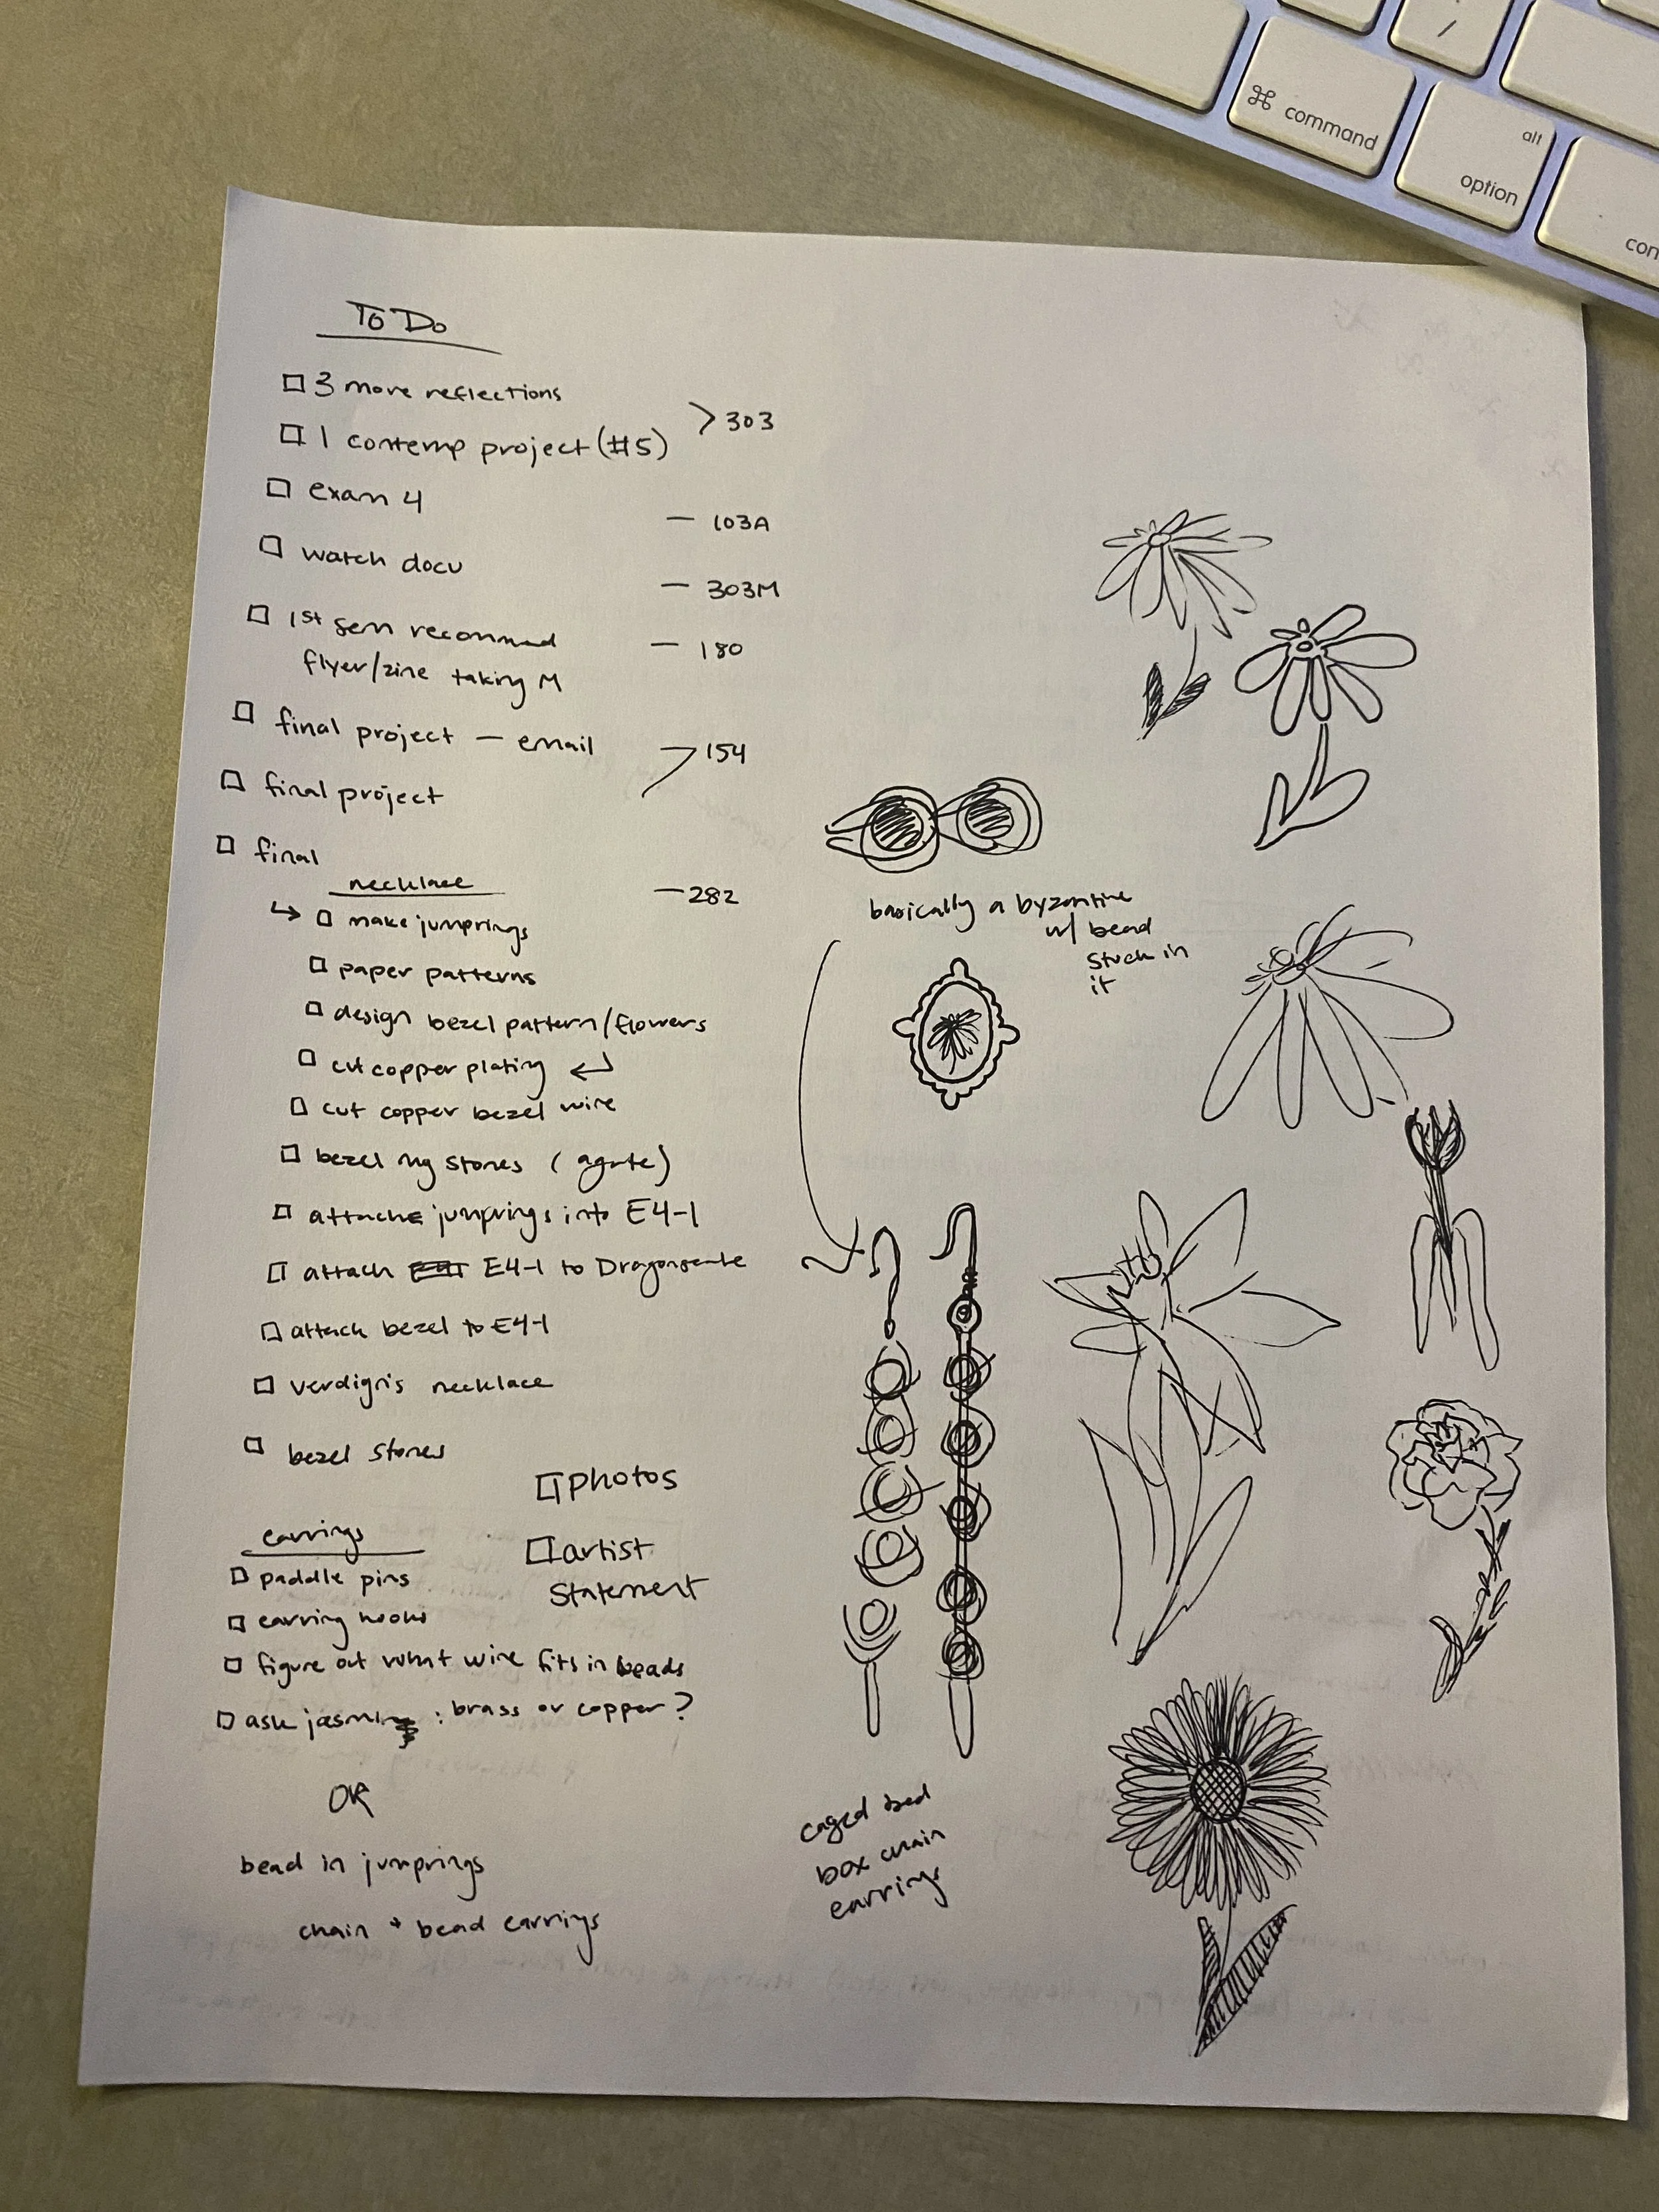 ⌘ command
alt
option
/
To Do
□ 3 more reflections
> 303
□ 1 contemp project (#5)
□ exam 4
— 103A
□ watch docu
— 303M
□ 1st sem recommend
— 180
flyer/zine taking M
□ final project — email
154
□ final project
□ final
necklace
— 282
↳ □ make jumprings
□ paper patterns
□ design bezel pattern/flowers
□ cut copper plating ↵
□ cut copper bezel wire
□ bezel my stones (agate)
□ attach jumprings into E4-1
□ attach E4-1 to Dragonscale
□ attach bezel to E4-1
□ verdigris necklace
□ bezel stones
□ photos
□ artist
statement
earrings
□ paddle pins
□ earring hooks
□ figure out what wire fits in beads
□ ask jasmin : brass or copper?
OR
bead in jumprings
chain + bead earrings
basically a byzantine
w/ bead
stuck in
it
caged bead
box chain
earrings